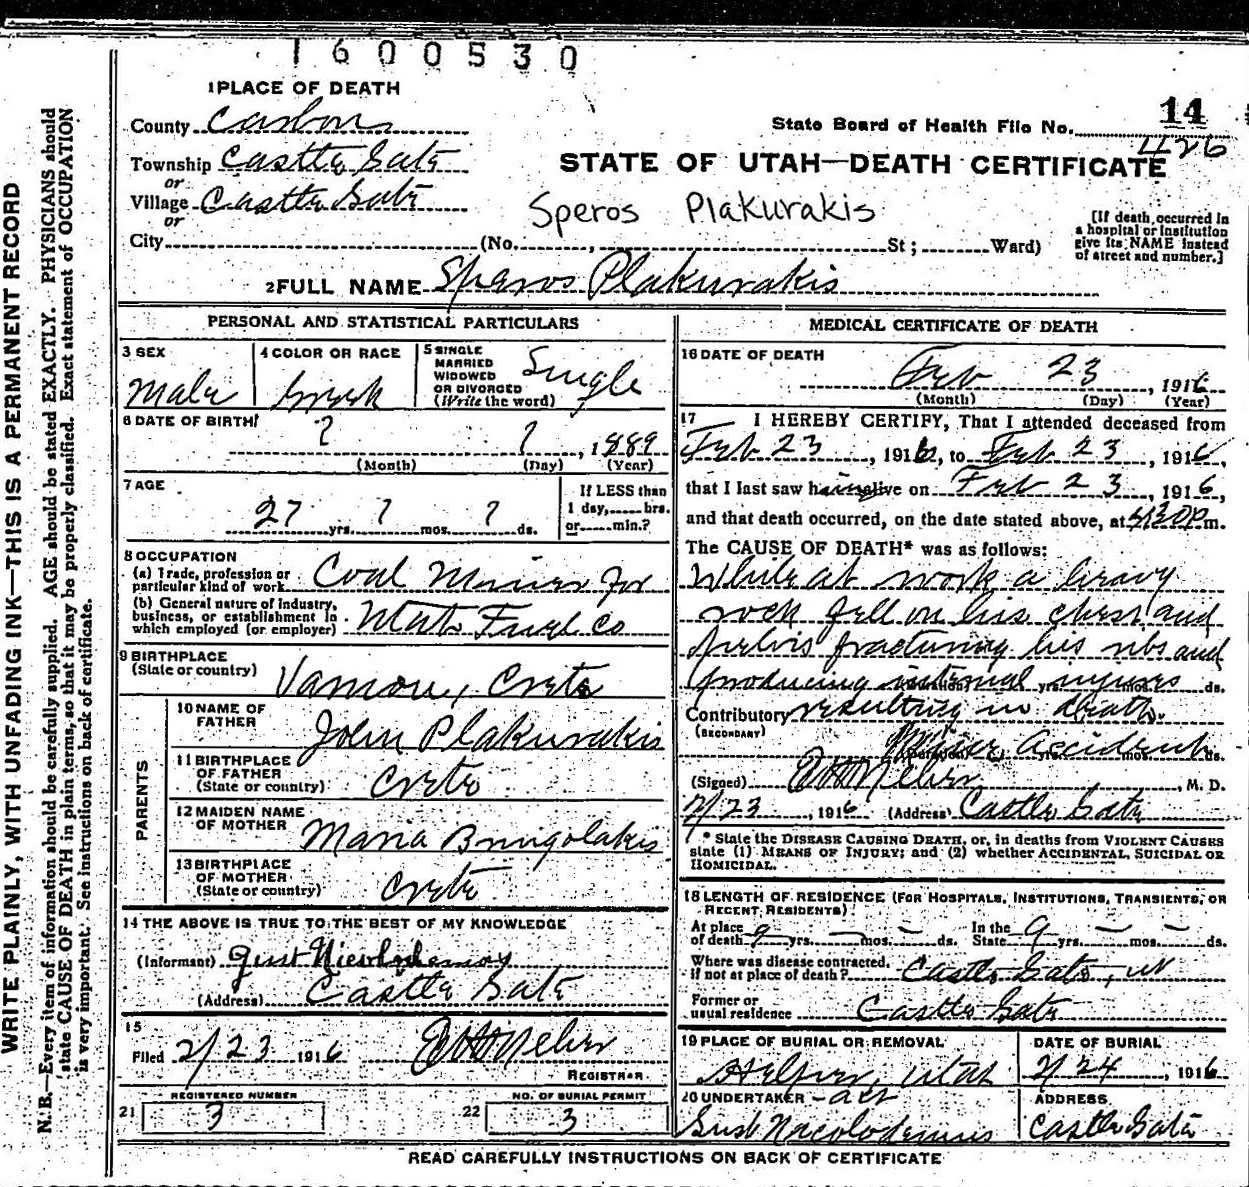 1600530
1 PLACE OF DEATH
County Carbon
14
State Board of Health File No. 426
Township Castle Gate
STATE OF UTAH—DEATH CERTIFICATE
or
Village Castle Gate
or
Speros Plakurakis
City (No. , St ; Ward)
[If death occurred in a hospital or institution give its NAME instead of street and number.]
2 FULL NAME Speros Plakurakis
PERSONAL AND STATISTICAL PARTICULARS
3 SEX
Male
4 COLOR OR RACE
Greek
5 SINGLE
MARRIED
WIDOWED
OR DIVORCED
(Write the word)
Single
6 DATE OF BIRTH
? ? , 1889
(Month) (Day) (Year)
7 AGE
27 yrs. ? mos. ? ds.
If LESS than
1 day, hrs.
or min.?
8 OCCUPATION
(a) Trade, profession or
particular kind of work Coal Miner for
(b) General nature of industry,
business, or establishment in
which employed (or employer) Utah Fuel Co
9 BIRTHPLACE
(State or country) Crete
10 NAME OF
FATHER John Plakurakis
11 BIRTHPLACE
OF FATHER
(State or country) Crete
12 MAIDEN NAME
OF MOTHER Maria
13 BIRTHPLACE
OF MOTHER
(State or country) Crete
PARENTS
14 THE ABOVE IS TRUE TO THE BEST OF MY KNOWLEDGE
(Informant) Gust
(Address) Castle Gate
15
Filed 2/23 1916
REGISTRAR.
REGISTERED NUMBER
21 3
NO. OF BURIAL PERMIT
22 3
MEDICAL CERTIFICATE OF DEATH
16 DATE OF DEATH
Feb 23 , 1916
(Month) (Day) (Year)
17 I HEREBY CERTIFY, That I attended deceased from
Feb 23 , 1916, to Feb 23 , 1916,
that I last saw him alive on Feb 23 , 1916,
and that death occurred, on the date stated above, at 4:30 P m.
The CAUSE OF DEATH* was as follows:
While at work a heavy
rock fell on his chest and
pelvis fracturing his ribs and
producing internal injures
(Duration) yrs. mos. ds.
Contributory resulting in death.
(SECONDARY)
Accident
(Duration) yrs. mos. ds.
(Signed) , M. D.
2/23 , 1916 (Address) Castle Gate
* State the DISEASE CAUSING DEATH, or, in deaths from VIOLENT CAUSES
state (1) MEANS OF INJURY; and (2) whether ACCIDENTAL, SUICIDAL OR
HOMICIDAL.
18 LENGTH OF RESIDENCE (FOR HOSPITALS, INSTITUTIONS, TRANSIENTS, OR
RECENT RESIDENTS)
At place
of death 9 yrs. — mos. — ds.
In the
State 9 yrs. — mos. — ds.
Where was disease contracted,
if not at place of death? Castle Gate, Ut
Former or
usual residence Castle Gate
19 PLACE OF BURIAL OR REMOVAL
Helper, Utah
DATE OF BURIAL
2/24 , 1916
20 UNDERTAKER - act
Gust
ADDRESS
Castle Gate
READ CAREFULLY INSTRUCTIONS ON BACK OF CERTIFICATE
WRITE PLAINLY, WITH UNFADING INK—THIS IS A PERMANENT RECORD
N. B.—Every item of information should be carefully supplied. AGE should be stated EXACTLY. PHYSICIANS should
state CAUSE OF DEATH in plain terms, so that it may be properly classified. Exact statement of OCCUPATION
is very important. See instructions on back of certificate.